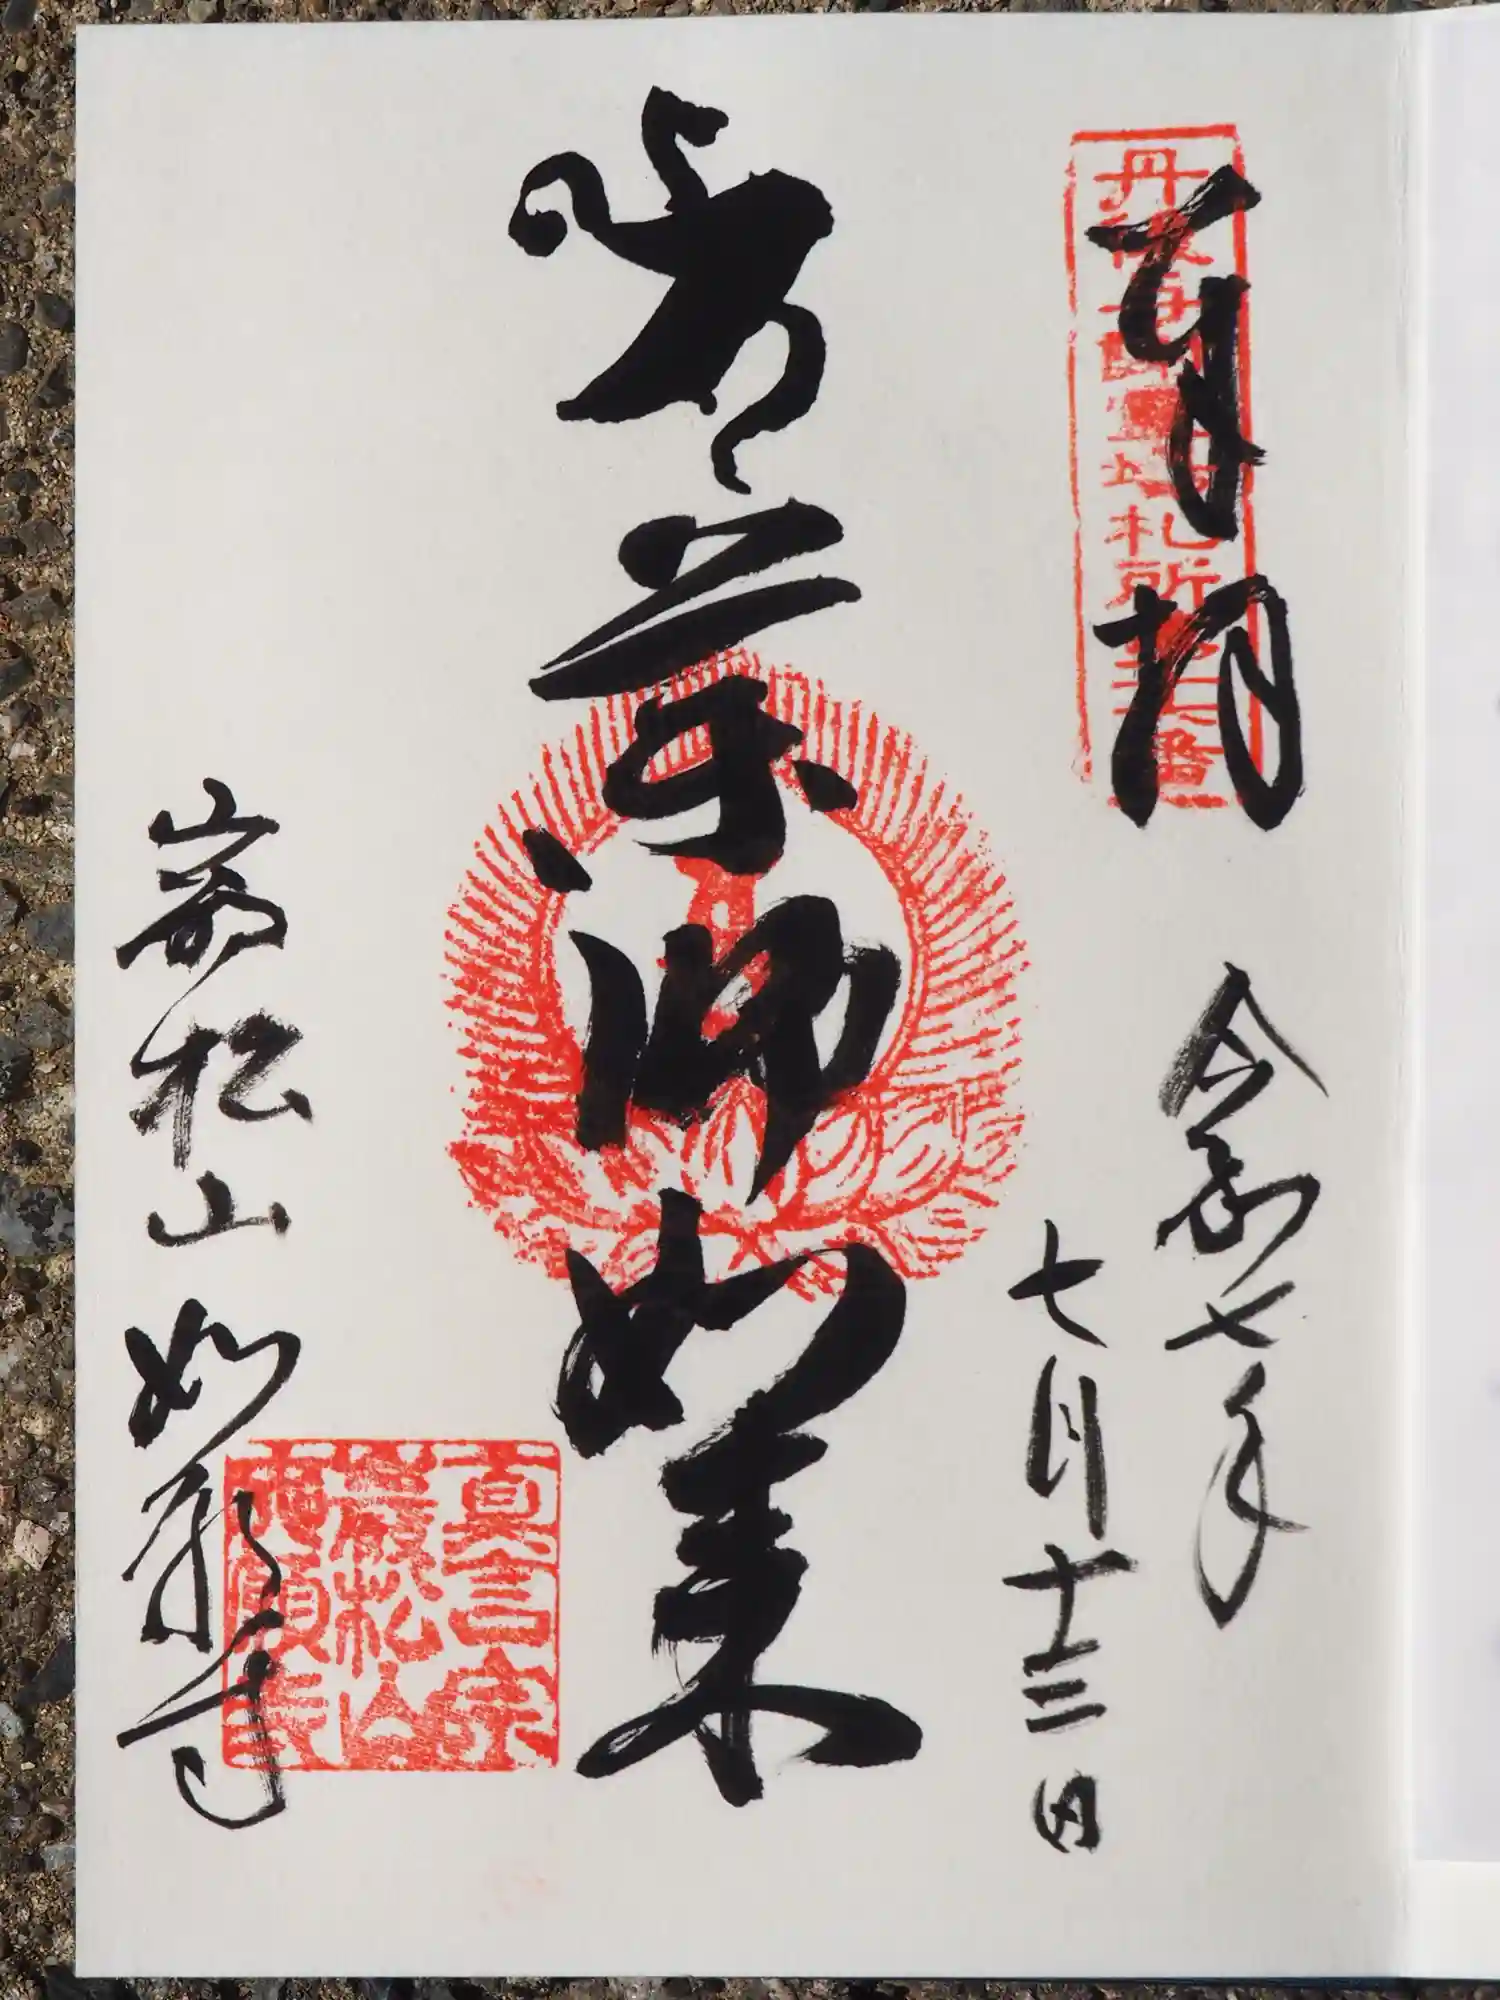 奉拝
丹後西国霊場札所
令和七年
七月十三日
薬師如来
巌松山 如願寺
真言宗
巌松山
如願寺